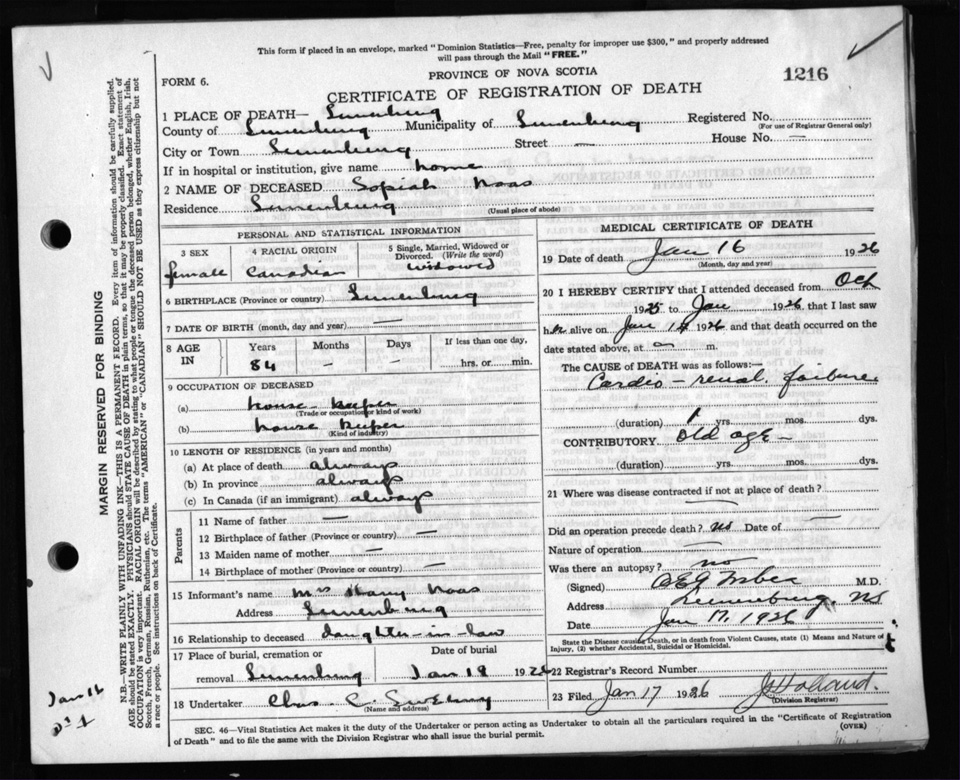 This form if placed in an envelope, marked "Dominion Statistics—Free, penalty for improper use $300," and properly addressed
will pass through the Mail "FREE."
PROVINCE OF NOVA SCOTIA
1216
FORM 6.
CERTIFICATE OF REGISTRATION OF DEATH
1 PLACE OF DEATH— Lunenburg
Registered No.
(For use of Registrar General only)
County of Lunenburg Municipality of Lunenburg
City or Town Lunenburg Street — House No. —
If in hospital or institution, give name home
2 NAME OF DECEASED Sopiah Naas
Residence Lunenburg
(Usual place of abode)
PERSONAL AND STATISTICAL INFORMATION
3 SEX 4 RACIAL ORIGIN 5 Single, Married, Widowed or
Divorced. (Write the word)
female Canadian widowed
6 BIRTHPLACE (Province or country) Lunenburg
7 DATE OF BIRTH (month, day and year) —
8 AGE IN Years Months Days If less than one day,
84 — — hrs. or min.
9 OCCUPATION OF DECEASED
(a) house keeper
(Trade or occupation or kind of work)
(b) house keeper
(Kind of industry)
10 LENGTH OF RESIDENCE (in years and months)
(a) At place of death always
(b) In province always
(c) In Canada (if an immigrant) always
Parents
11 Name of father —
12 Birthplace of father (Province or country) —
13 Maiden name of mother —
14 Birthplace of mother (Province or country) —
15 Informant's name Mrs Harry Naas
Address Lunenburg
16 Relationship to deceased daughter-in-law
17 Place of burial, cremation or Date of burial
removal Lunenburg Jan 18 1926
18 Undertaker Chas. C. Sweeny
(Name and address)
MEDICAL CERTIFICATE OF DEATH
19 Date of death Jan 16 1926
(Month, day and year)
20 I HEREBY CERTIFY that I attended deceased from Oct
1925 to Jan 1926, that I last saw
her alive on Jan 1926 and that death occurred on the
date stated above, at m.
The CAUSE of DEATH was as follows:—
Cardio - renal. failure
(duration) 1 yrs. mos. dys.
CONTRIBUTORY Old age —
(duration) yrs. mos. dys.
21 Where was disease contracted if not at place of death? —
Did an operation precede death? no Date of —
Nature of operation —
Was there an autopsy? no
(Signed) M.D.
Address Lunenburg NS
Date Jan 17, 1926
State the Disease causing Death, or in death from Violent Causes, state (1) Means and Nature of
Injury, (2) whether Accidental, Suicidal or Homicidal.
22 Registrar's Record Number
23 Filed Jan 17 1926 J Holland.
(Division Registrar)
SEC. 46—Vital Statistics Act makes it the duty of the Undertaker or person acting as Undertaker to obtain all the particulars required in the "Certificate of Registration
of Death" and to file the same with the Division Registrar who shall issue the burial permit.
(OVER)
MARGIN RESERVED FOR BINDING
N.B.—WRITE PLAINLY WITH UNFADING INK—THIS IS A PERMANENT RECORD. Every item of information should be carefully supplied.
AGE should be stated EXACTLY. PHYSICIANS should STATE CAUSE OF DEATH in plain terms, so that it may be properly classified. Exact statement of
OCCUPATION is very important. RACIAL ORIGIN will be described by stating to what people or tongue the deceased person belonged, whether English, Irish,
Scotch, French, German, Russian, Ruthenian, etc. The terms "AMERICAN" or "CANADIAN" SHOULD NOT BE USED as they express citizenship but not
a race or people. See instructions on back of Certificate.
Jan 16